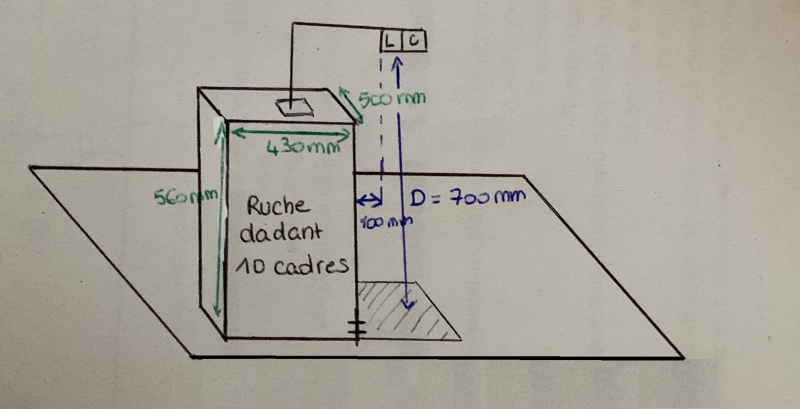 L C
500 mm
430mm
560mm
Ruche
dadant
10 cadres
D = 700 mm
100 mm